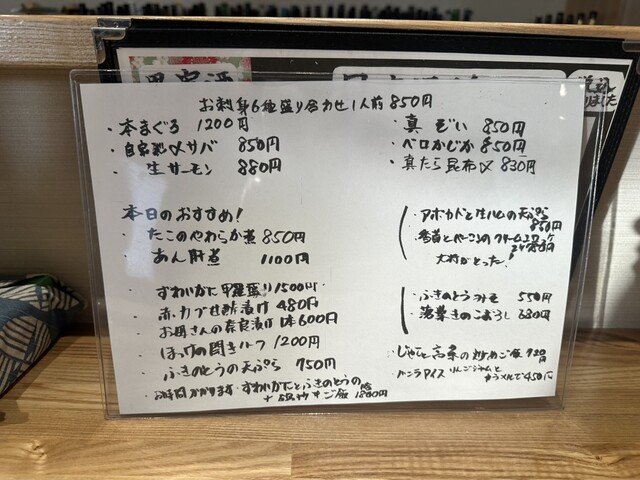 お刺身6種盛り合わせ1人前 850円
・本まぐろ 1200円
・自家製〆サバ 850円
・生サーモン 880円
・真ぞい 850円
・ベロかじか 850円
・真たら昆布〆 830円
本日のおすすめ!
・たこのやわらか煮 850円
・あん肝煮 1100円
・アボカドと生ハムの天ぷら
850円
大村がとった!
・ずわいがに甲羅盛り 1500円
・赤カブ甘酢漬け 480円
・お母さんの奈良漬け 600円
・ほっけの開きハーフ 1200円
・ふきのとうの天ぷら 750円
・ふきのとうみそ 550円
・お時間かかります ずわいがにとふきのとうの
ご飯 1800円
・じゃこと高菜の炒めご飯 920円
・バニラアイス りんごジャムと
450円